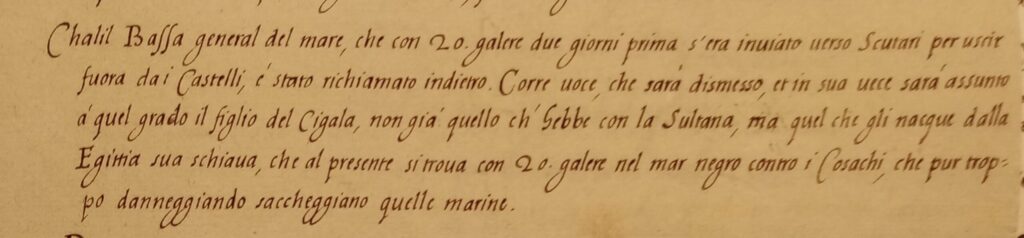 Chalil Bassa general del mare, che con 20. galere due giorni prima s'era inuiato uerso Scutari per uscir
fuora dai Castelli, é stato richiamato indietro. Corre uoce, che sará dismesso, et in sua uece sará assunto
á quel grado il figlio del Cigala, non giá quello ch'hebbe con la Sultana, ma quel che gli nacque dalla
Egittia sua schiaua, che al presente si troua con 20. galere nel mar negro contro i Cosachi, che pur trop=
po danneggiando saccheggiano quelle marine.